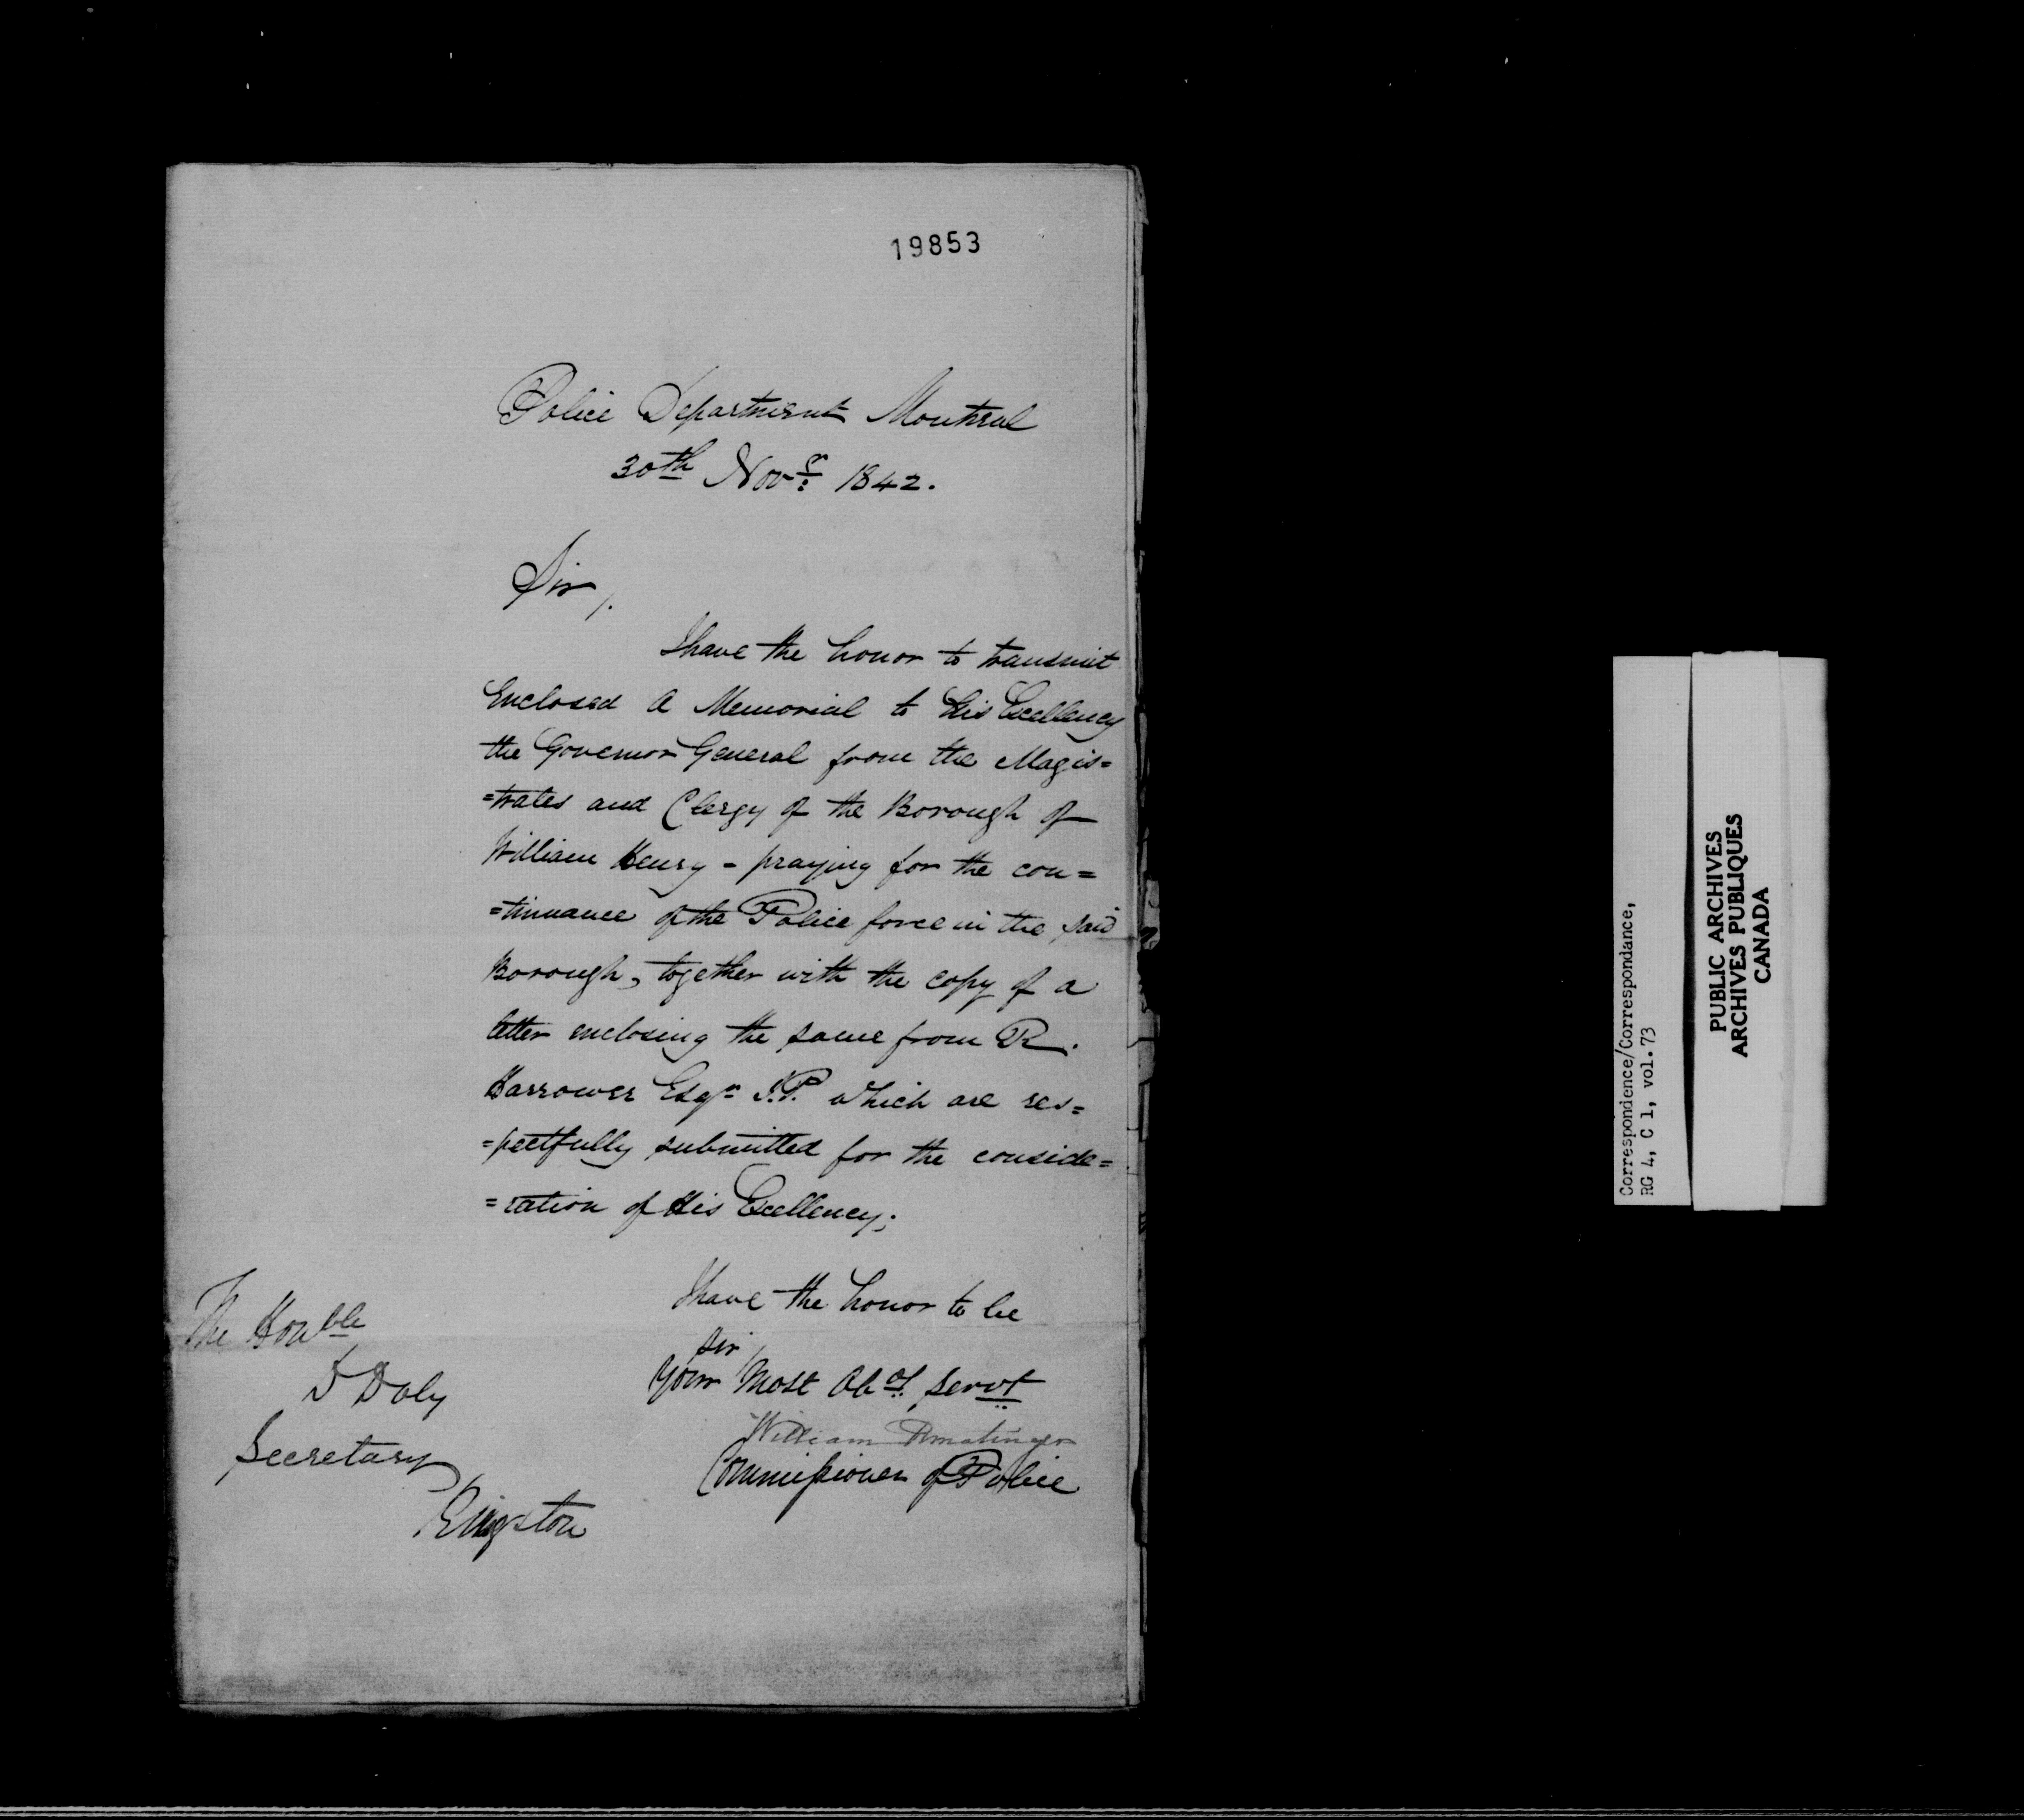 19853
Police Department Montreal
30th Novr 1842.
Sir,
I have the honor to transmit
Enclosed a Memorial to His Excellency
the Governor General from the Magis=
=trates and Clergy of the Borough of
William Henry - praying for the con=
=tinuance of the Police force in the said
Borough, together with the copy of a
letter enclosing the same from R.
Harrower Esqr J.P. which are res=
=pectfully submitted for the conside=
=ration of His Excellency;
I have the honor to be
Sir
Your Most Obdt Servt
William Ermatinger
Commissioner of Police
The Honble
D Daly
Secretary
Kingston
Correspondence/Correspondance,
RG 4, C 1, vol.73
PUBLIC ARCHIVES
ARCHIVES PUBLIQUES
CANADA